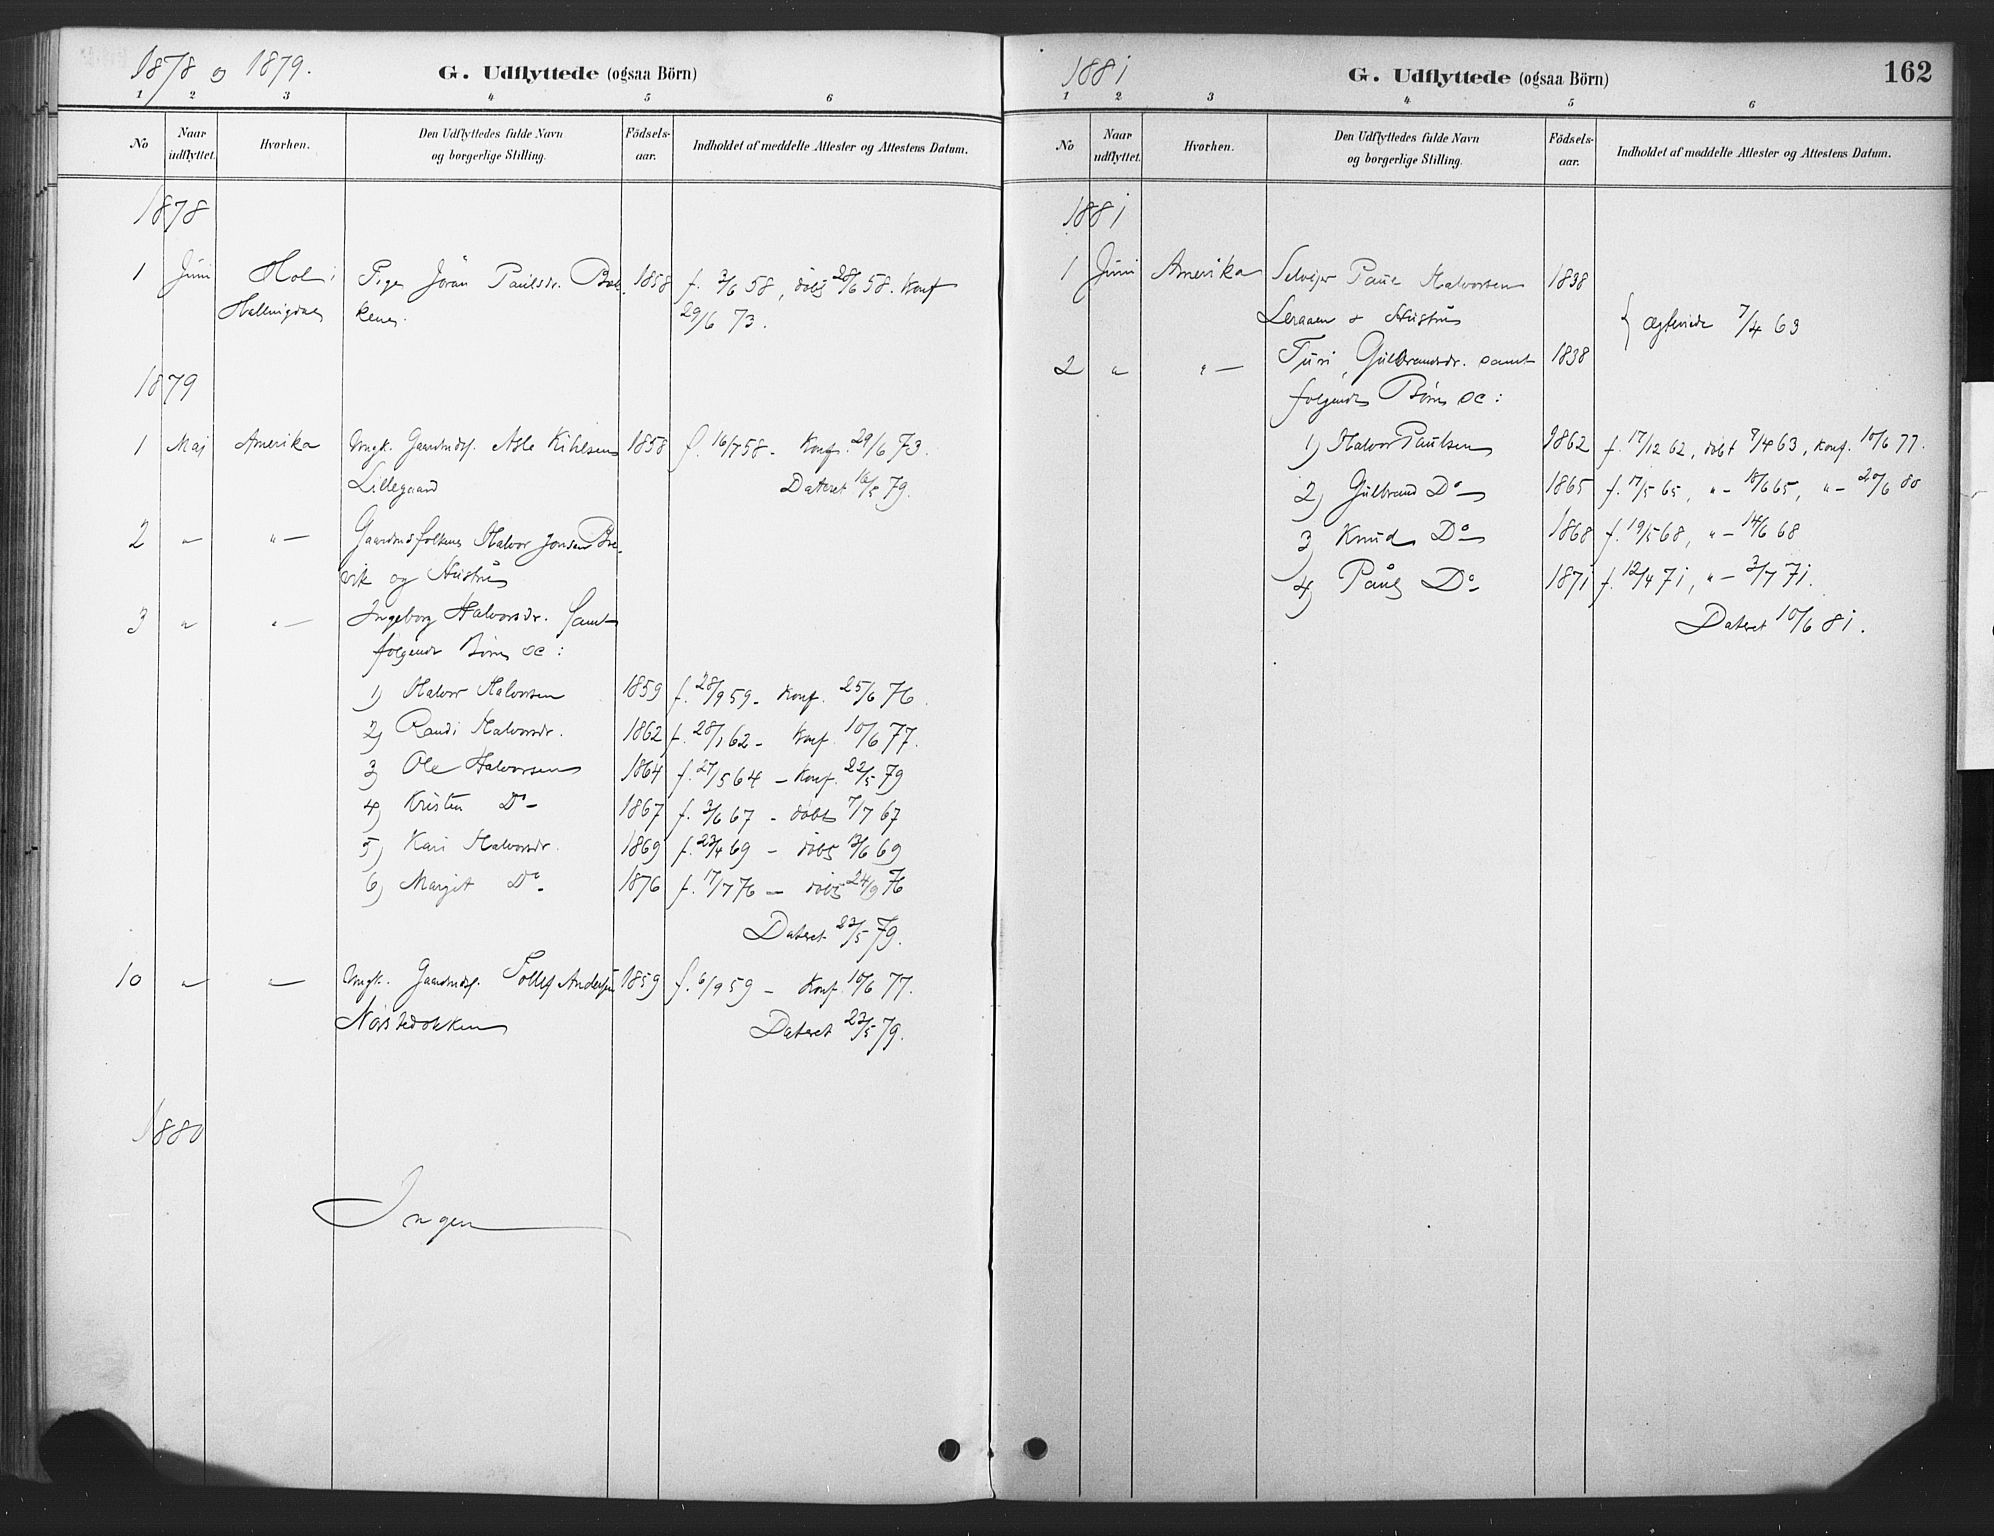 1878 og 1879.
G. Udflyttede (ogsaa Börn)
1 2 3 4 5 6
No
Naar udflyttet.
Hvorhen.
Den Udflyttedes fulde Navn og borgerlige Stilling.
Födsels-aar.
Indholdet af meddelte Attester og Attestens Datum.
1878
1 Juni Hol i Pige Jörån Paulsdr. Bak- 1858 f. 3/6 58, döbt 20/6 58. Konf
Hallingdal kene. 29/6 73.
1879
1 Maj Amerika Ungk. Gaardmds. Asle Kihlsen 1858 f. 16/7 58 - Konf. 29/6 73.
Lillegaard Dateret 16/5 79.
2 " — " — Gaardmdsfolkene Halvor Jonsen Bre-
vik og Hustru
3 " " — Ingeborg Halvorsdr. Samt
følgende Børn sc:
1) Halvor Halvorsen 1859 f. 28/9 59 - Konf. 25/6 76.
2) Randi Halvorsdr. 1862 f. 28/1 62 - Konf. 10/6 77.
3) Ole Halvorsen 1864 f. 27/5 64 - Konf. 22/5 79
4) Kristen Do - 1867 f. 3/6 67 - döbt 7/7 67
5) Kari Halvorsdr. 1869 f. 23/4 69 - döbt 13/6 69
6) Margit Do - 1876 f. 17/7 76 - döbt 24/9 76
Dateret 22/5 79.
10 " — " — Ungk. Gaardmds. Tollef Andersen 1859 f. 6/9 59 - Konf. 10/6 77.
Norstedokken Dateret 22/5 79.
1880
Ingen
1881
G. Udflyttede (ogsaa Börn)
162
1 2 3 4 5 6
No
Naar udflyttet.
Hvorhen.
Den Udflyttedes fulde Navn og borgerlige Stilling.
Födsels-aar.
Indholdet af meddelte Attester og Attestens Datum.
1881
1 Juni Amerika Selvejer Paul Halvorsen 1838
Leraaen & Hustru { ægteviede 7/4 63
2 " " — Turi Gulbrandsdr. samt 1838
følgende Børn sc:
1) Halvor Paulsen 1862 f. 17/12 62, döbt 7/4 63, Konf. 10/6 77.
2) Gulbrand Do - 1865 f. 17/5 65, " - 15/6 65, " - 20/6 80
3) Knud Do - 1868 f. 19/5 68, " - 14/6 68
4) Paul Do - 1871 f. 12/4 71, " - 2/7 71.
Dateret 10/6 81.